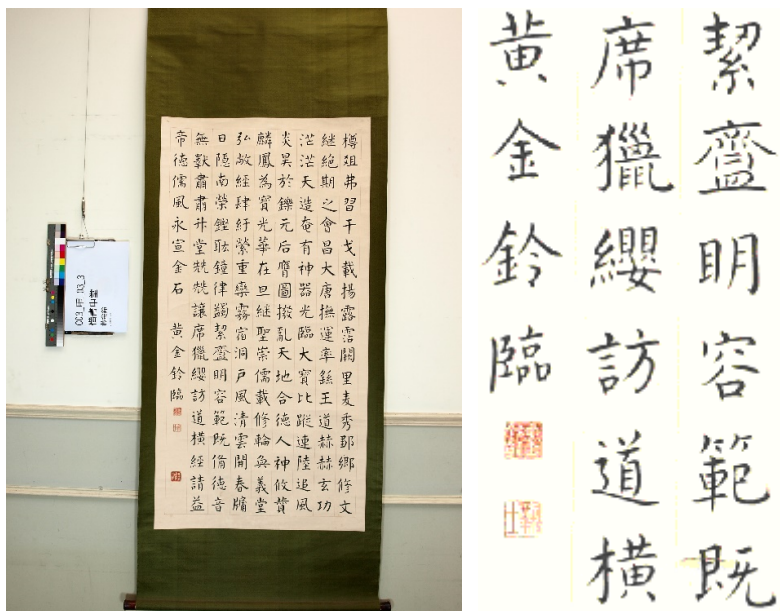 樽俎弗習干戈載揚露霑闕里麦秀鄒鄉修文
继絶期之會昌大唐撫運率繇王道赫赫玄功
茫茫天造奄有神器光臨大寶比蹤連陸追風
炎昊於鑠元后膺圖撥亂天地合德人神攸贊
麟鳳為寶光華在旦继聖崇儒載修輪奐義堂
弘敞經肆紆縈重欒霧宿洞戶風清雲開春牖
日隱南榮鏗耾鐘律蠲絜齍明容範既俻德音
無斁肅肅升堂兟兟讓席獵纓訪道橫經請益
帝德儒風永宣金石 黃金鈴臨
CC3_PF_113_3
絜齍明容範既
席獵纓訪道橫
黃金鈴臨